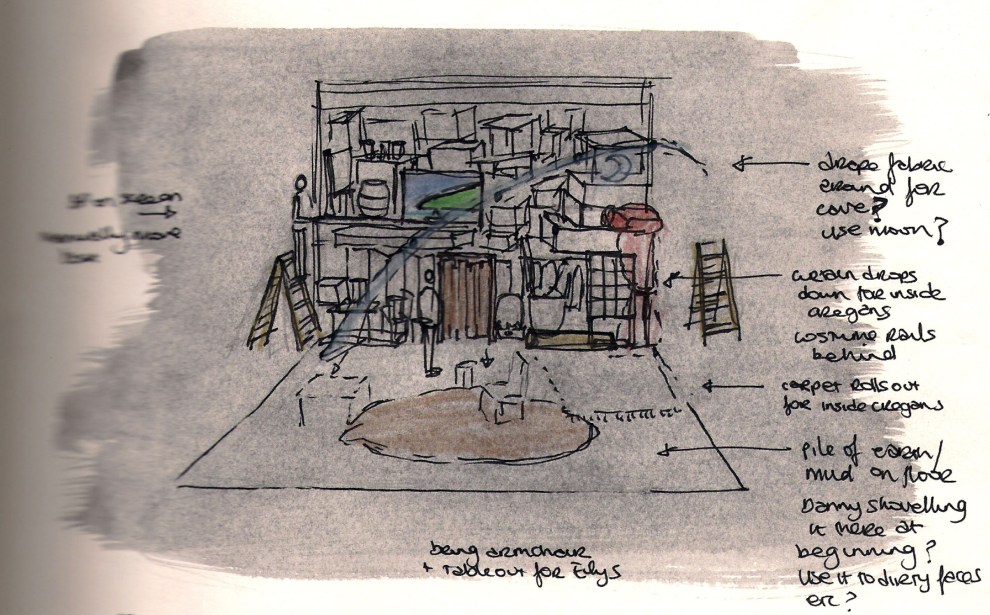 more
drape fabric
around for
cave?
use moon?
curtain drops
down for inside
cregans
costume rails
behind
carpet rolls out
for inside cregans
pile of earth/
mud on floor
Danny shovelling
it there at
beginning?
Use it to dirty faces
etc?
bring armchair
+ table out for Eilys